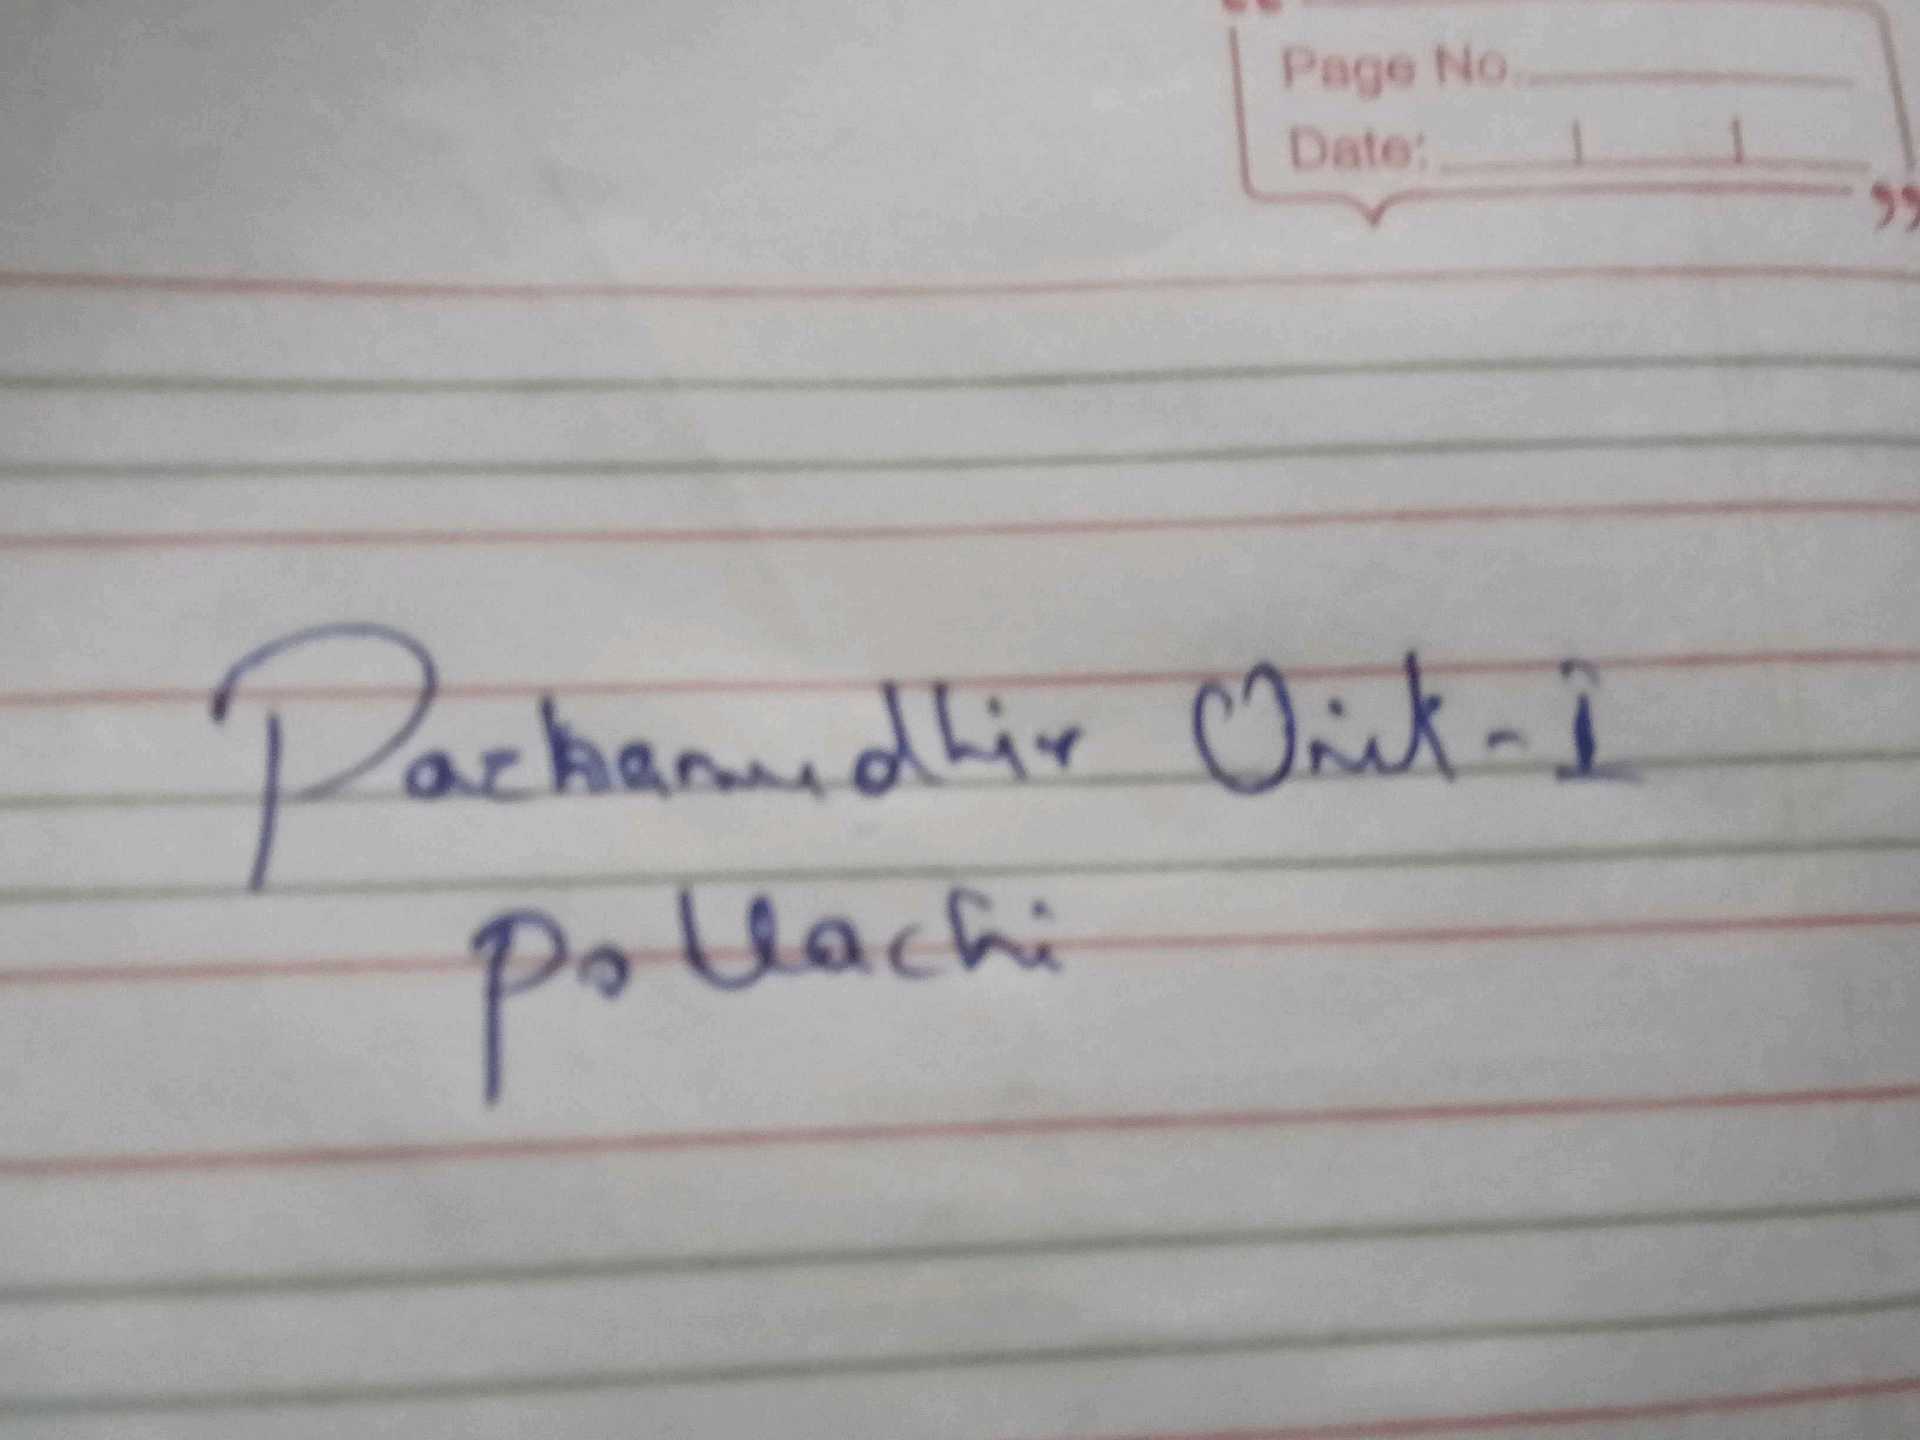 Page No.
Date:
Pazhamudhir Unit-I
Pollachi